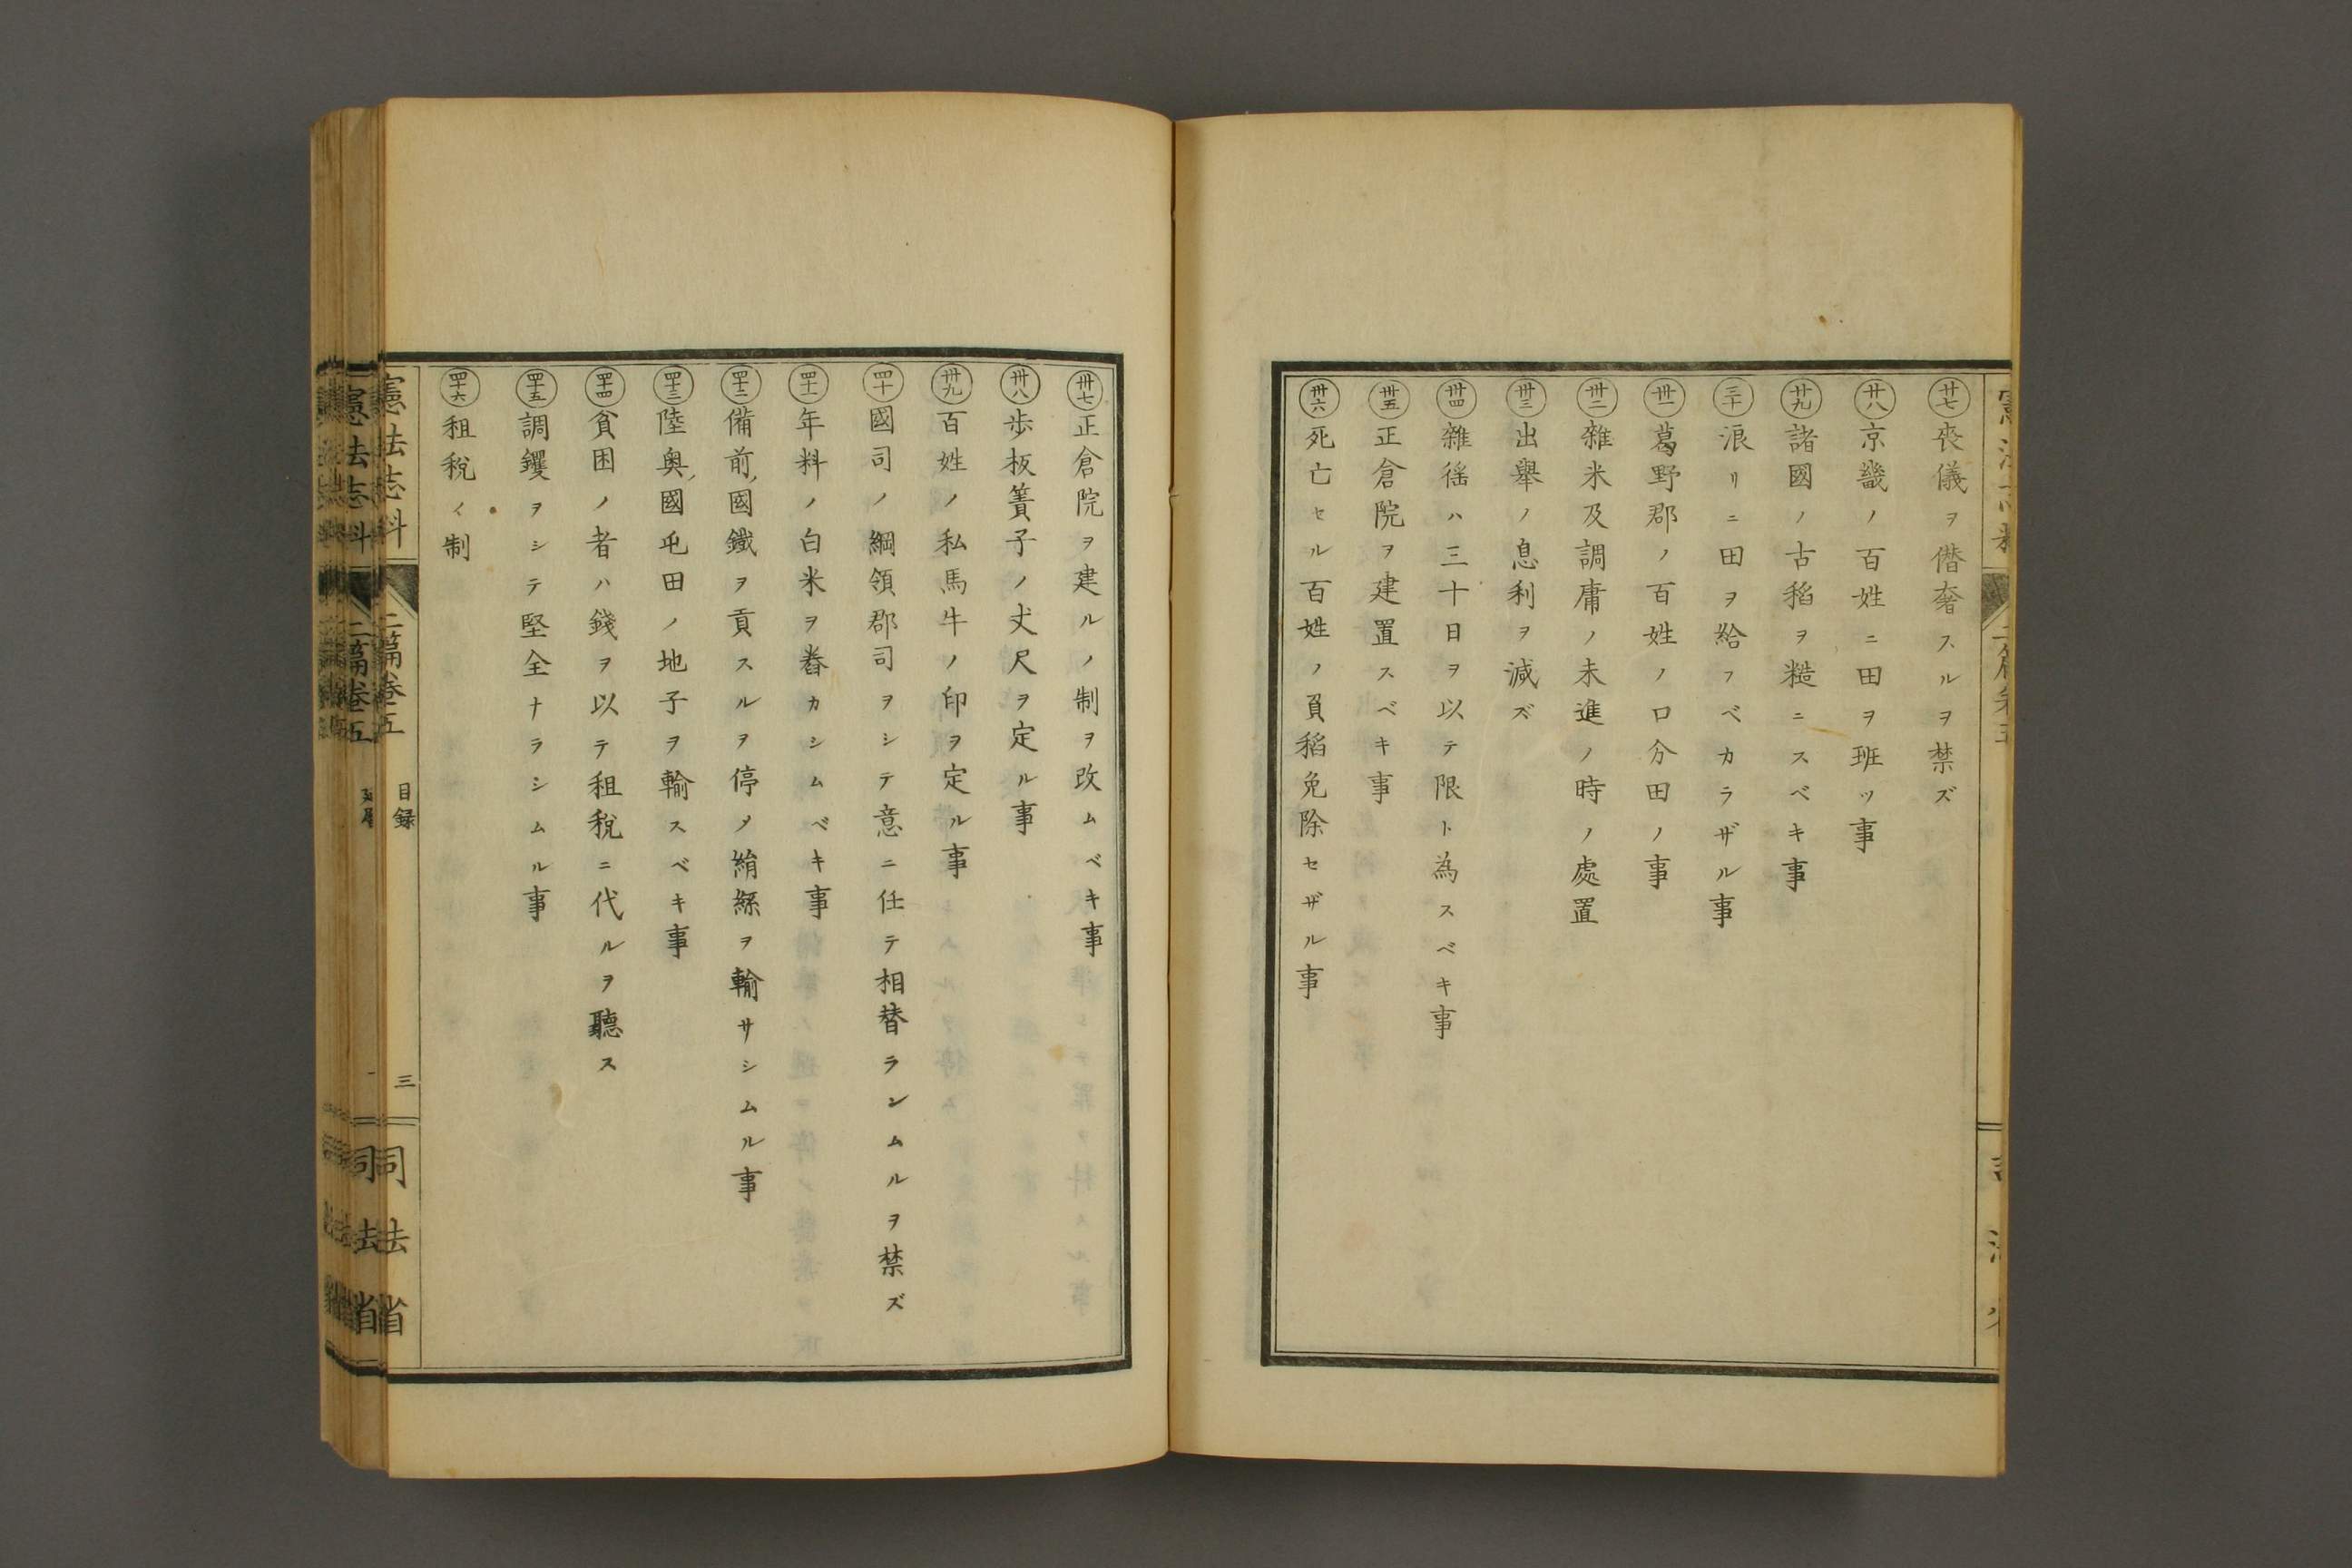 廿七 喪儀ヲ僭奢スルヲ禁ズ
廿八 京畿ノ百姓ニ田ヲ班ツ事
廿九 諸國ノ古稻ヲ糙ニスベキ事
三十 浪リニ田ヲ給フベカラザル事
卅一 葛野郡ノ百姓ノ口分田ノ事
卅二 雜米及調庸ノ未進ノ時ノ處置
卅三 出擧ノ息利ヲ減ズ
卅四 雜徭ハ三十日ヲ以テ限ト為スベキ事
卅五 正倉院ヲ建置スベキ事
卅六 死亡セル百姓ノ負稻免除セザル事
卅七 正倉院ヲ建ルノ制ヲ改ムベキ事
卅八 歩板簀子ノ丈尺ヲ定ル事
卅九 百姓ノ私馬牛ノ印ヲ定ル事
四十 國司ノ綱領郡司ヲシテ意ニ任テ相替ランムルヲ禁ズ
四十一 年料ノ白米ヲ舂カシムベキ事
四十二 備前國鐵ヲ貢スルヲ停メ絹緜ヲ輸サシムル事
四十三 陸奥國屯田ノ地子ヲ輸スベキ事
四十四 貧困ノ者ハ錢ヲ以テ租税ニ代ルヲ聽ス
四十五 調钁ヲシテ堅全ナラシムル事
四十六 租税ノ制
憲法志料 二篇卷五 目録 三 司法省
憲法志料 二篇卷五 司法省